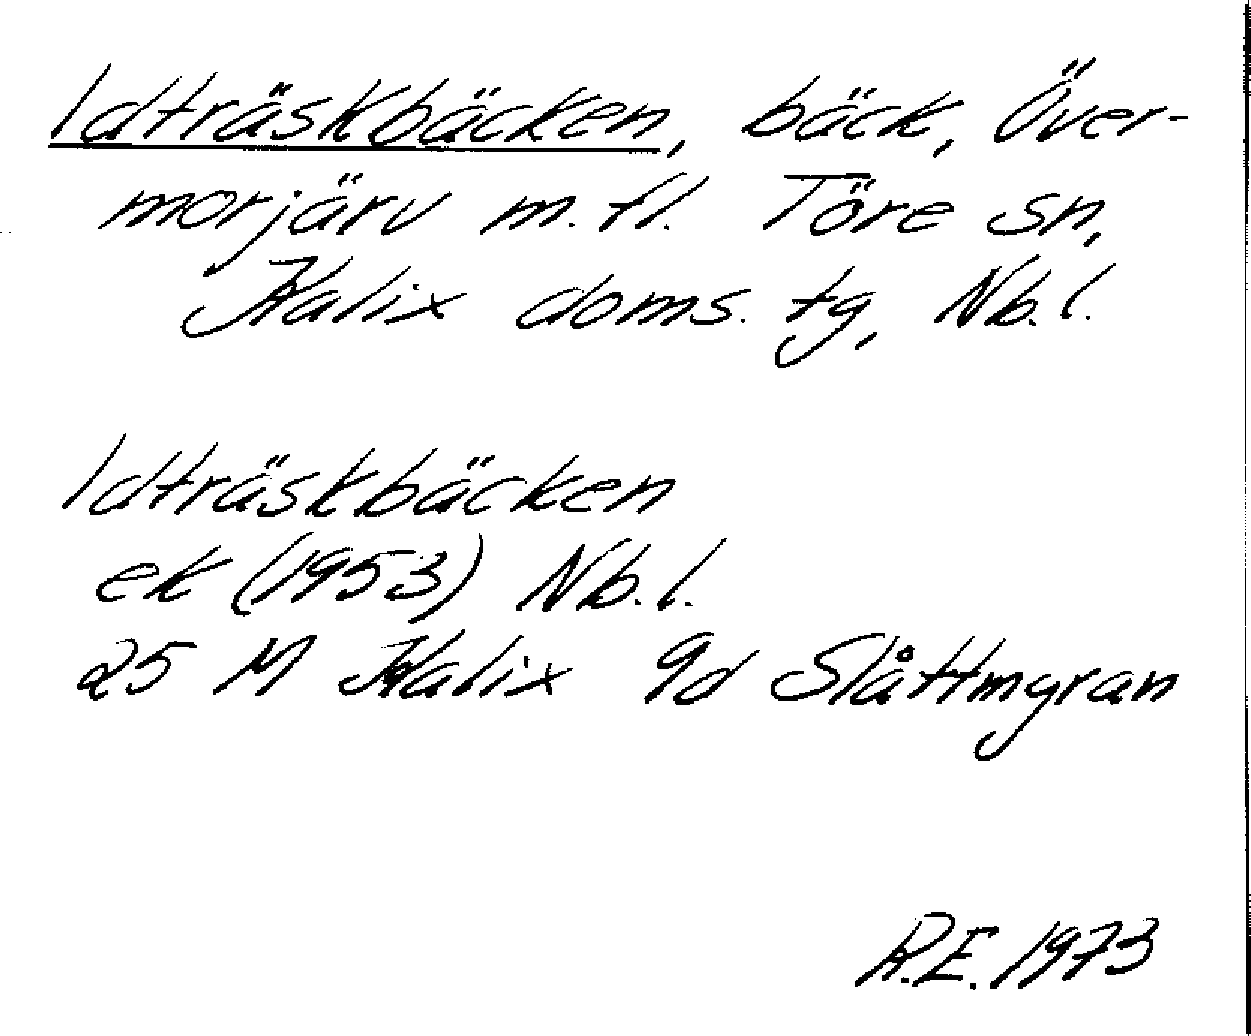 Idträskbäcken, bäck, Över-
morjärv m.fl. Töre sn,
Kalix doms. tg, Nb.l.
Idträskbäcken
ek (1953) Nb.l.
25 M Kalix 9d Slåttmyran
R.E. 1973